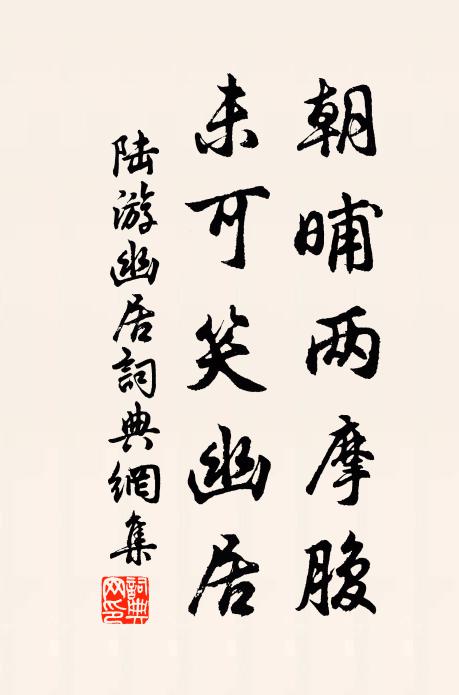 朝晡两摩腹
未可笑幽居
陆游幽居詞典網集
詞典
网印